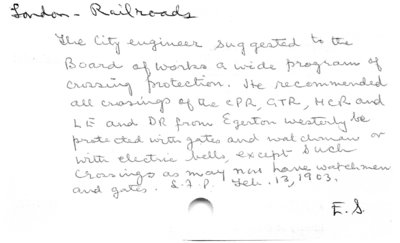 London - Railroads
The City engineer suggested to the
Board of Works a wide program of
crossing protection. He recommended
all crossings of the CPR, GTR, MCR and
LE and DR from Egerton westerly be
protected with gates and watchman or
with electric bells, except such
crossings as may now have watchmen
and gates. L.F.P. Feb. 13, 1903.
E. S.